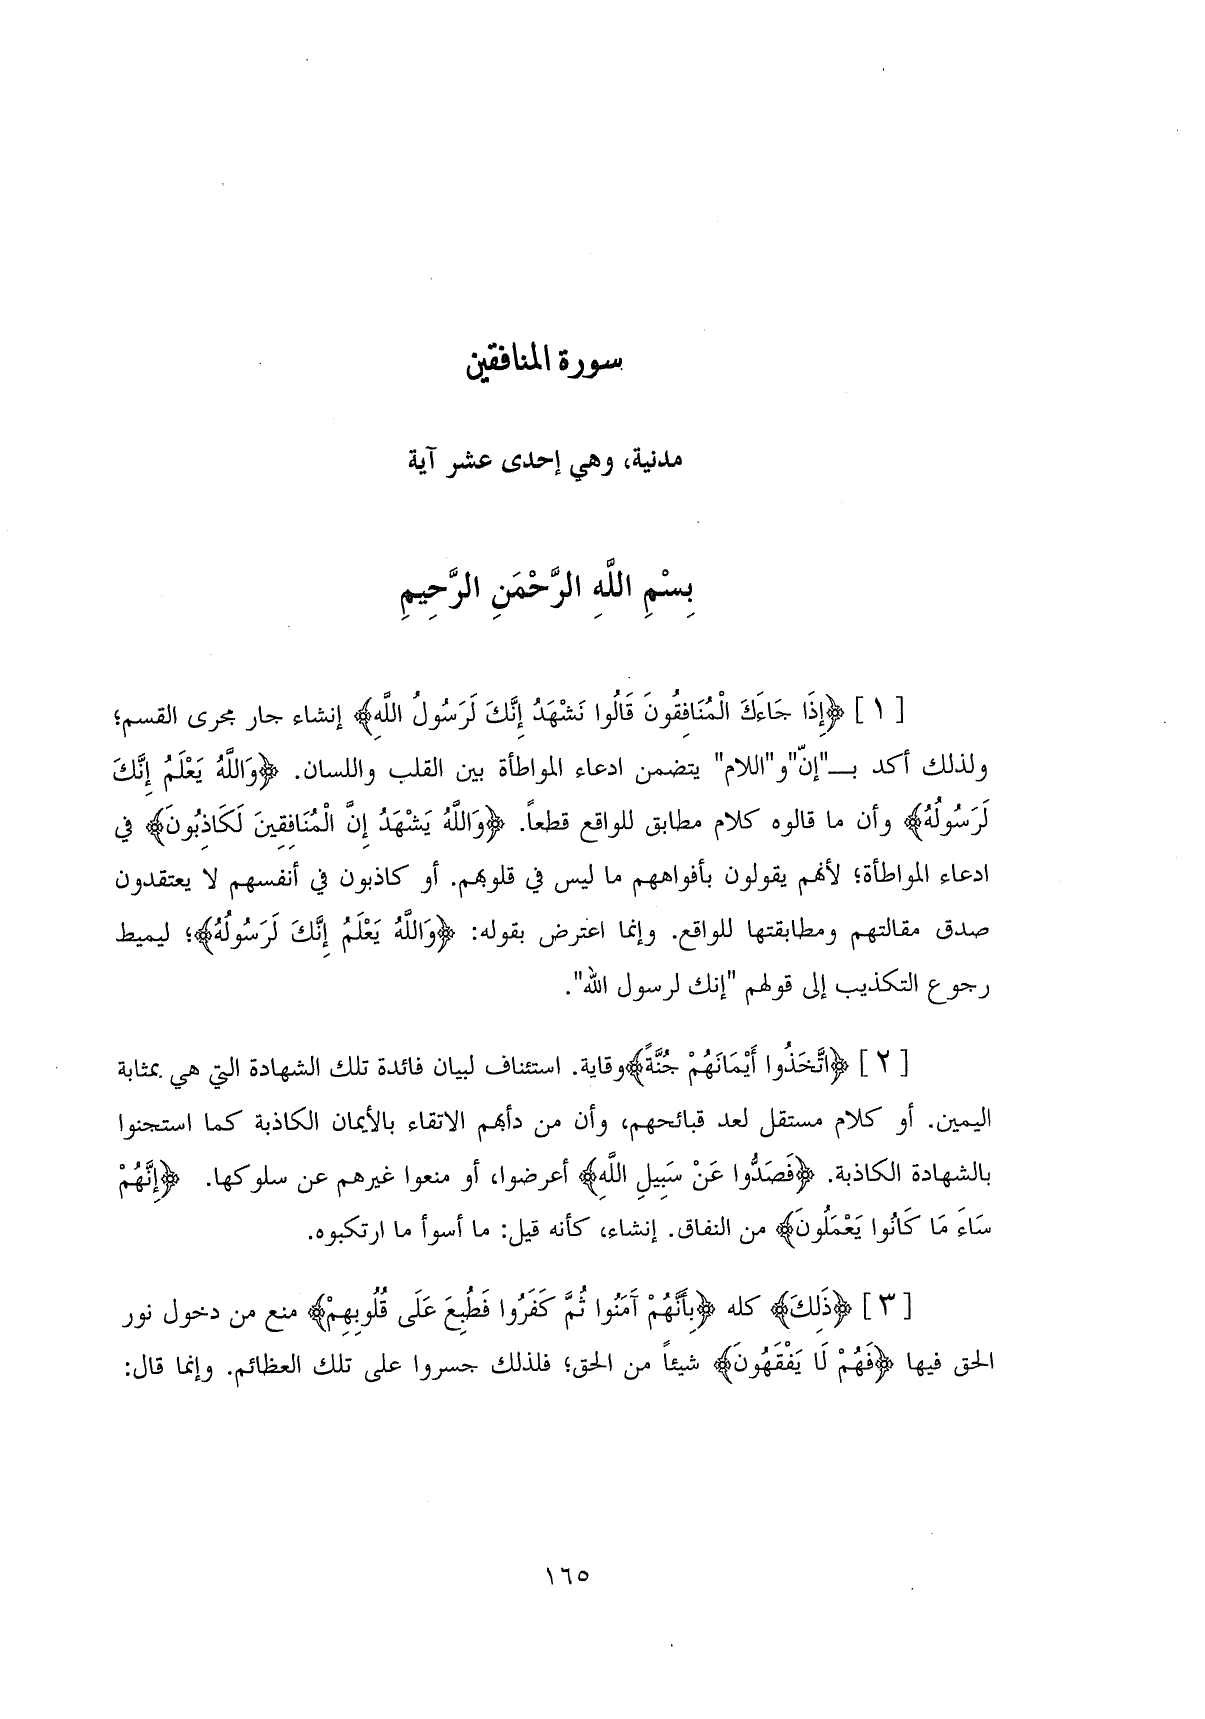 سورة المنافقين
مدنية، وهي إحدى عشر آية
بِسْمِ اللَّهِ الرَّحْمَنِ الرَّحِيمِ
[ ١ ] ﴿إِذَا جَاءَكَ الْمُنَافِقُونَ قَالُوا نَشْهَدُ إِنَّكَ لَرَسُولُ اللَّهِ﴾ إنشاء جار مجرى القسم؛
ولذلك أكد بـــ"إنّ"و"اللام" يتضمن ادعاء المواطأة بين القلب واللسان. ﴿وَاللَّهُ يَعْلَمُ إِنَّكَ
لَرَسُولُهُ﴾ وأن ما قالوه كلام مطابق للواقع قطعاً. ﴿وَاللَّهُ يَشْهَدُ إِنَّ الْمُنَافِقِينَ لَكَاذِبُونَ﴾ في
ادعاء المواطأة؛ لأنهم يقولون بأفواههم ما ليس في قلوبهم. أو كاذبون في أنفسهم لا يعتقدون
صدق مقالتهم ومطابقتها للواقع. وإنما اعترض بقوله: ﴿وَاللَّهُ يَعْلَمُ إِنَّكَ لَرَسُولُهُ﴾؛ ليميط
رجوع التكذيب إلى قولهم "إنك لرسول الله".
[ ٢ ] ﴿اتَّخَذُوا أَيْمَانَهُمْ جُنَّةً﴾وقاية. استئناف لبيان فائدة تلك الشهادة التي هي بمثابة
اليمين. أو كلام مستقل لعد قبائحهم، وأن من دأبهم الاتقاء بالأيمان الكاذبة كما استجنوا
بالشهادة الكاذبة. ﴿فَصَدُّوا عَنْ سَبِيلِ اللَّهِ﴾ أعرضوا، أو منعوا غيرهم عن سلوكها. ﴿إِنَّهُمْ
سَاءَ مَا كَانُوا يَعْمَلُونَ﴾ من النفاق. إنشاء، كأنه قيل: ما أسوأ ما ارتكبوه.
[ ٣ ] ﴿ذَلِكَ﴾ كله ﴿بِأَنَّهُمْ آَمَنُوا ثُمَّ كَفَرُوا فَطُبِعَ عَلَى قُلُوبِهِمْ﴾ منع من دخول نور
الحق فيها ﴿فَهُمْ لَا يَفْقَهُونَ﴾ شيئاً من الحق؛ فلذلك جسروا على تلك العظائم. وإنما قال:
١٦٥